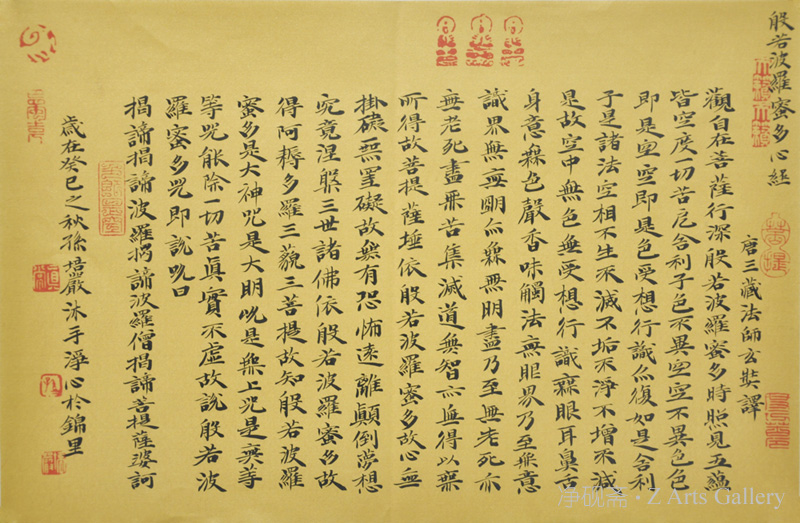 般若波羅蜜多心經
唐三藏法師玄奘譯
觀自在菩薩行深般若波羅蜜多時照見五蘊
皆空度一切苦厄舍利子色不異空空不異色色
即是空空即是色受想行識亦復如是舍利
子是諸法空相不生不滅不垢不淨不增不減
是故空中無色無受想行識無眼耳鼻舌
身意無色聲香味觸法無眼界乃至無意
識界無無明亦無無明盡乃至無老死亦
無老死盡無苦集滅道無智亦無得以無
所得故菩提薩埵依般若波羅蜜多故心無
掛礙無罣礙故無有恐怖遠離顛倒夢想
究竟涅槃三世諸佛依般若波羅蜜多故
得阿耨多羅三藐三菩提故知般若波羅
蜜多是大神咒是大明咒是無上咒是無等
等咒能除一切苦真實不虛故說般若波
羅蜜多咒即說咒曰
揭諦揭諦波羅揭諦波羅僧揭諦菩提薩婆訶
歲在癸巳之秋孫培嚴沐手淨心於錦里
净砚斋·Z Arts Gallery